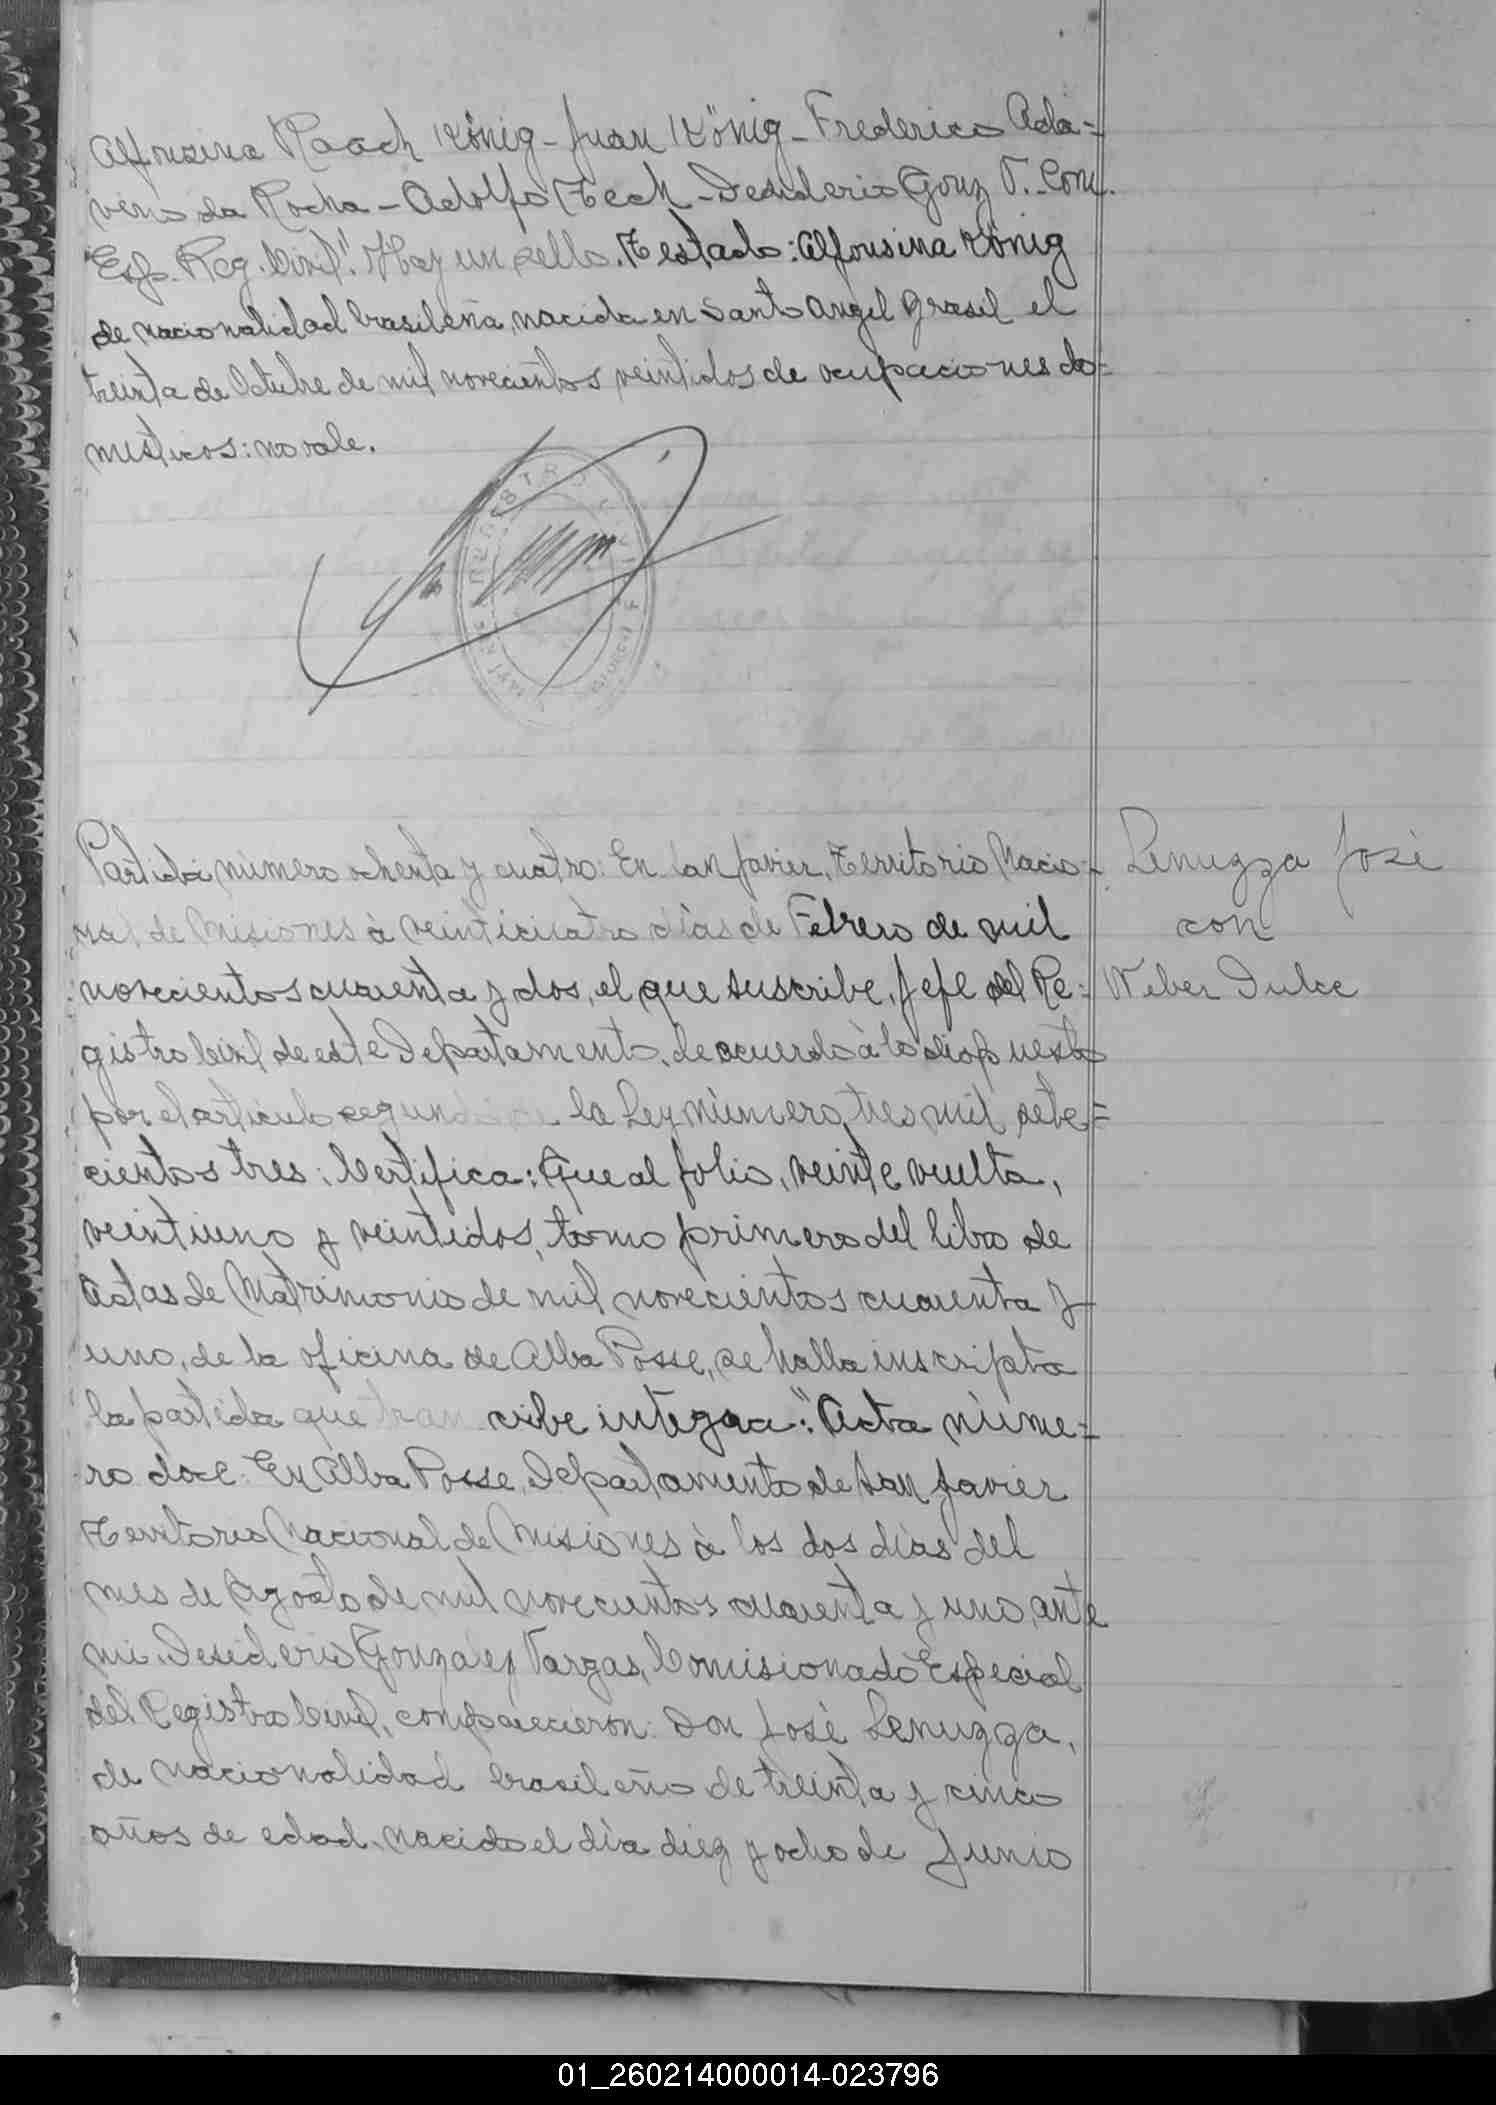 Alfonsina Raach König - Juan König - Frederico Ada=
vino da Rocha - Adolfo Tech - Desiderio Gonz V. - Com.
Esp. Reg. Civil". Hay un sello. Testado: Alfonsina König
de nacionalidad brasileña, nacida en Santo Angel Brasil el
treinta de Octubre de mil novecientos veintidos de ocupaciones do=
mesticos: no vale.
Partida número ochenta y cuatro: En San Javier, Territorio Nacio=
nal de Misiones à veinticuatro días de Febrero de mil
novecientos cuarenta y dos, el que suscribe, Jefe del Re=
gistro Civil de este Departamento, de acuerdo à lo dispuesto
por el artículo segundo de la Ley número tres mil sete=
cientos tres: Certifica: Que al folio, veinte vuelta,
veintiuno y veintidos, tomo primero del libro de
Actas de Matrimonio de mil novecientos cuarenta y
uno, de la oficina de Alba Posse, se halla inscripta
la partida que transcribe integra: "Acta núme=
ro doce: En Alba Posse, Departamento de San Javier
Territorio Nacional de Misiones à los dos días del
mes de Agosto de mil novecientos cuarenta y uno, ante
mi, Desiderio Gonzalez Vargas, Comisionado Especial
del Registro Civil, comparecieron: Don José Lenuzza,
de nacionalidad brasileño de treinta y cinco
años de edad, nacido el día diez y ocho de Junio
Lenuzza José
con
Weber Dulce
01_260214000014-023796